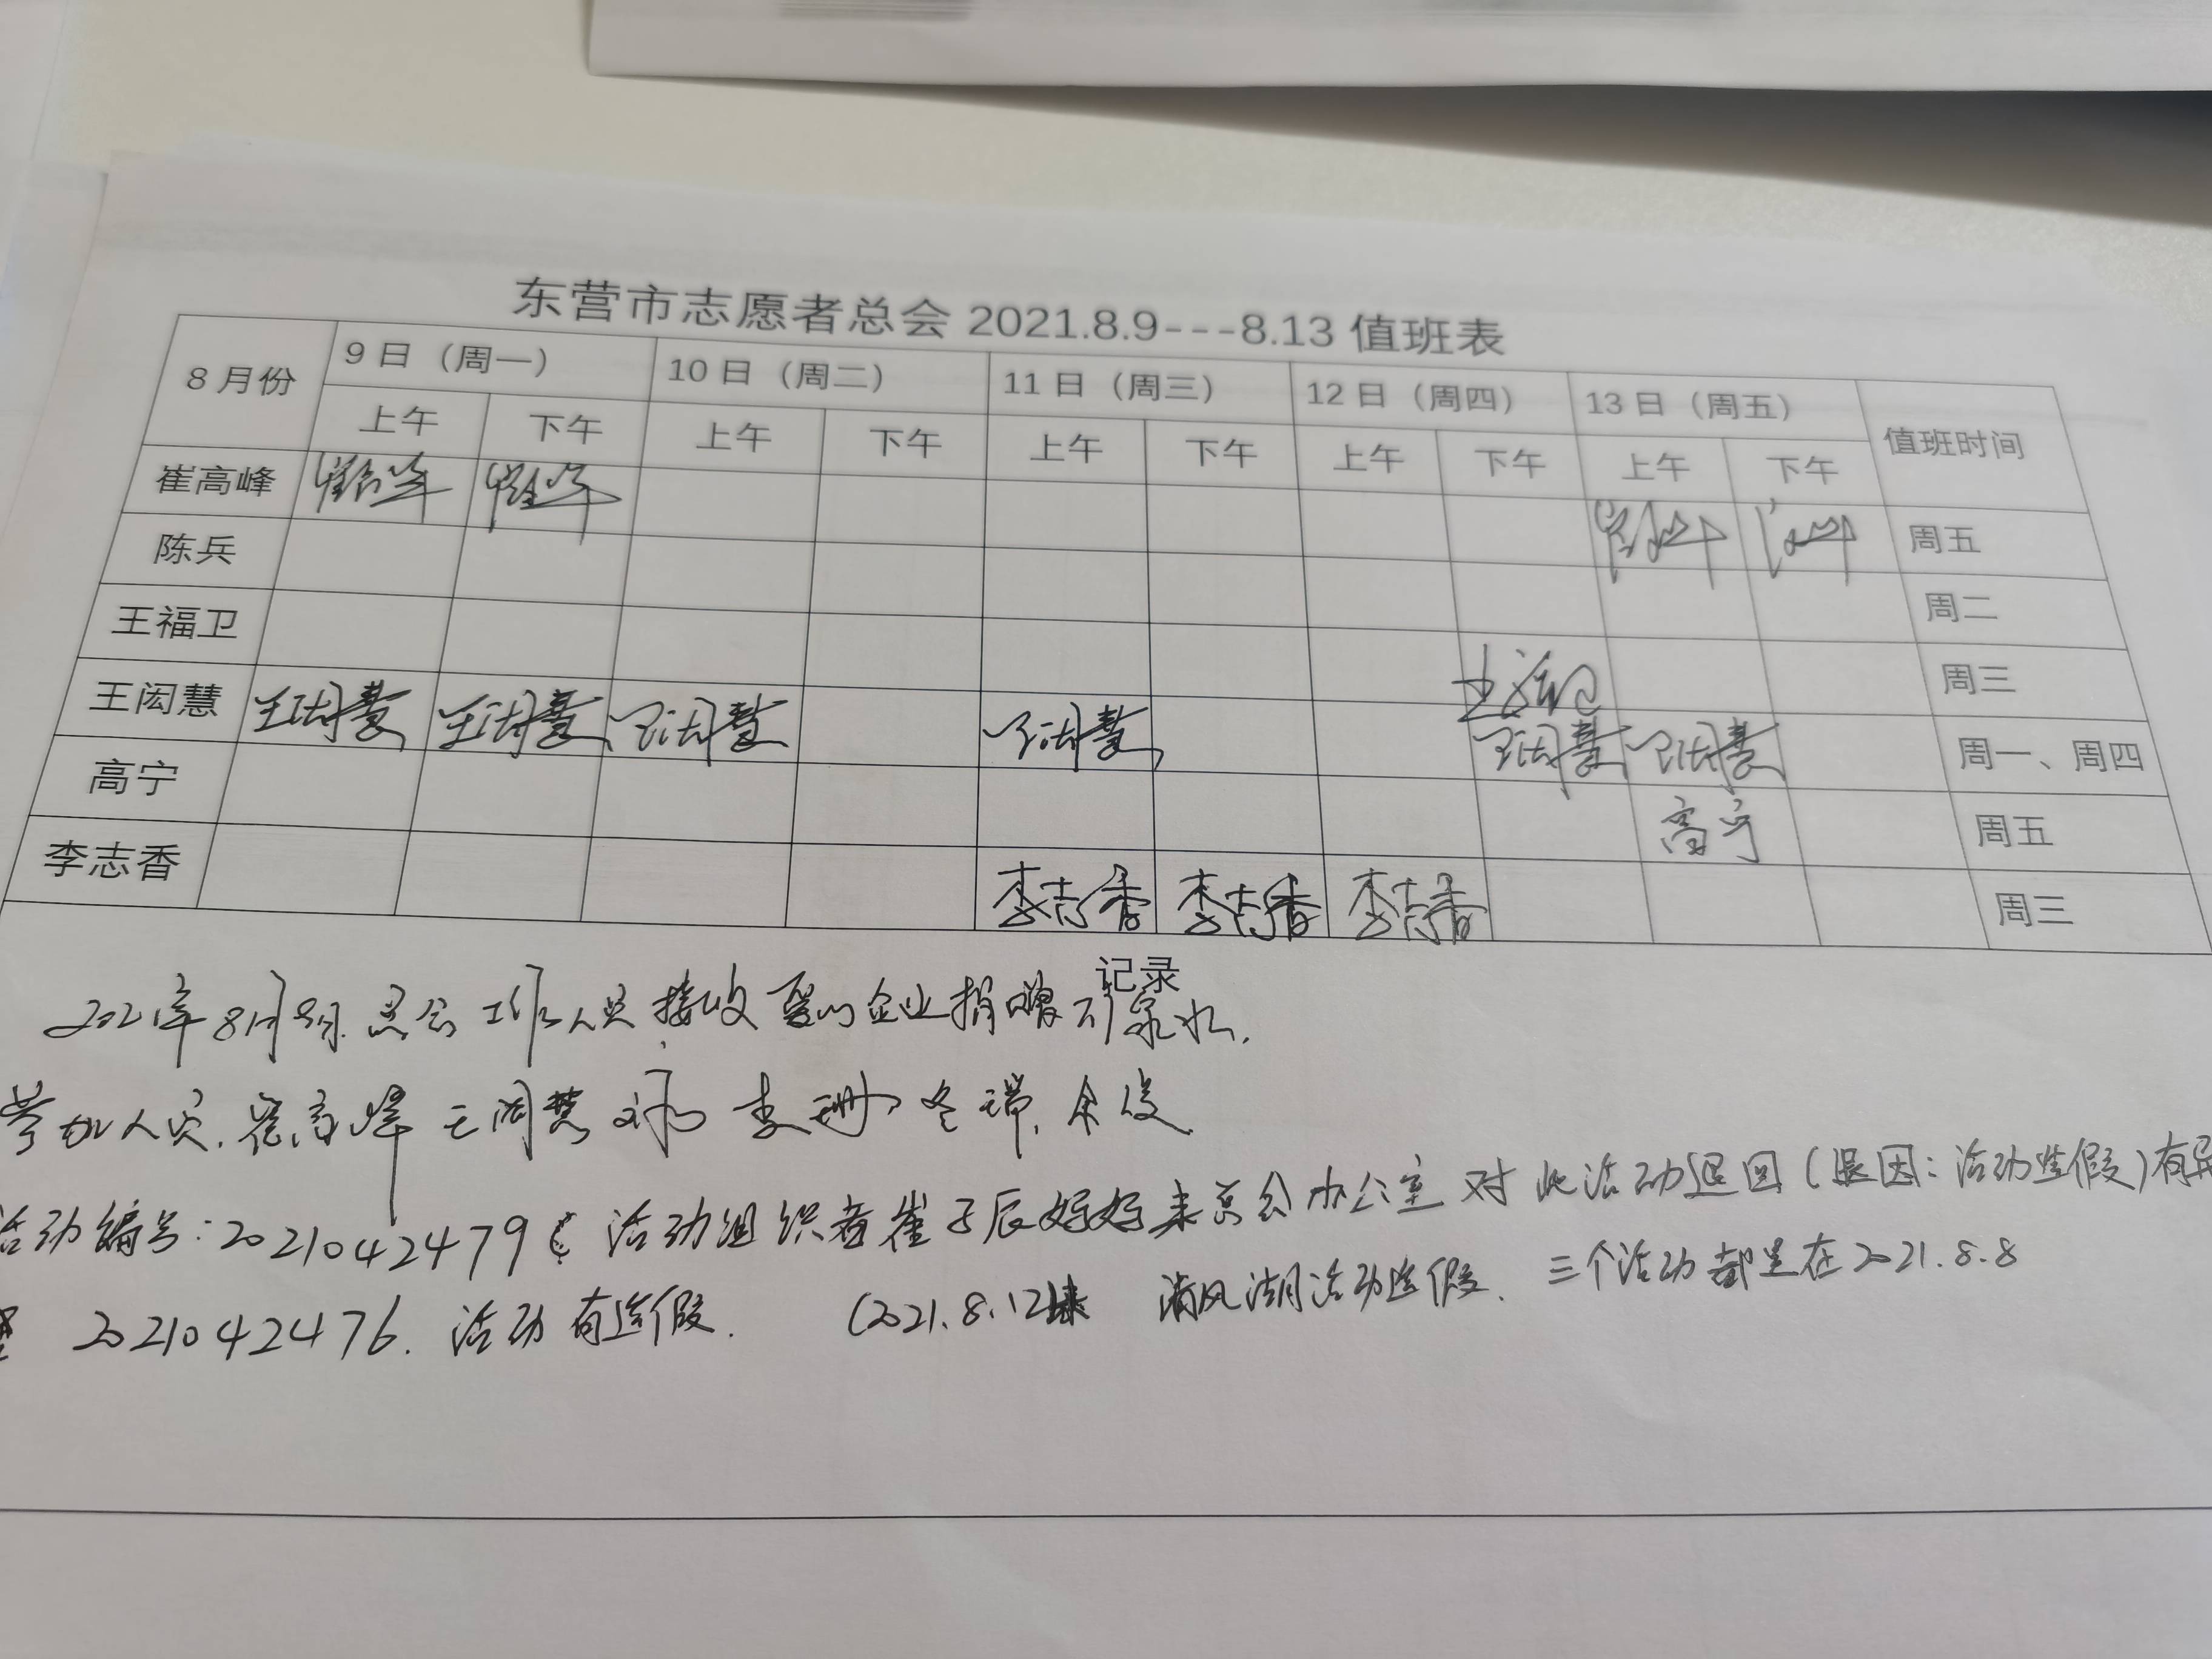 东营市志愿者总会 2021.8.9---8.13 值班表
8 月份 9 日（周一） 10 日（周二） 11 日（周三） 12 日（周四） 13 日（周五） 值班时间
上午 下午 上午 下午 上午 下午 上午 下午 上午 下午
崔高峰 崔高峰 崔高峰 崔高峰 周五
陈兵 周二
王福卫 王福卫 周三
王闳慧 王闳慧 王闳慧 王闳慧 王闳慧 王闳慧 王闳慧 周一、周四
高宁 高宁 周五
李志香 李志香 李志香 李志香 周三
记录
2021年8月9日 总会工作人员接收爱心企业捐赠 泉水.
参加人员.崔高峰 王闳慧 李珊
活动编号:2021042479 活动组织者崔子辰好好来总会办公室 对此活动退回(退因:活动造假)有异
2021042476. 活动有造假. (2021.8.12 清风湖活动造假. 三个活动都是在2021.8.8